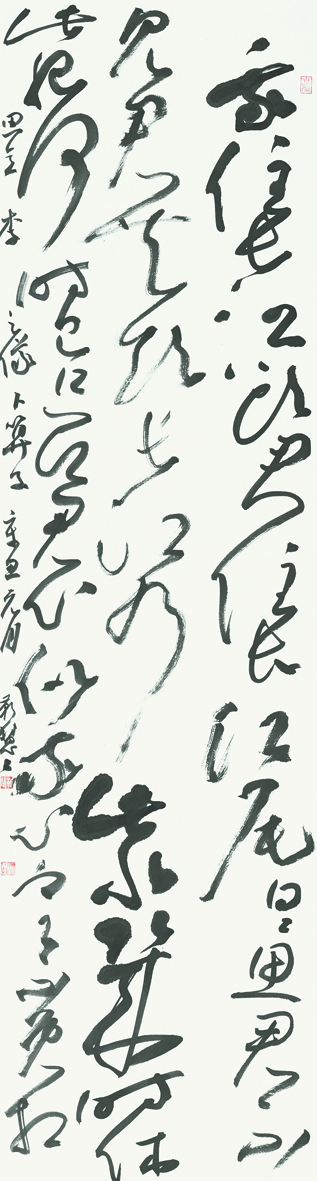 我住長江頭君住長江尾日日思君不
見君共飲長江水此水幾時休
此恨何時已只願君心似我心定不負相
思意 李之儀 卜算子 辛丑元月